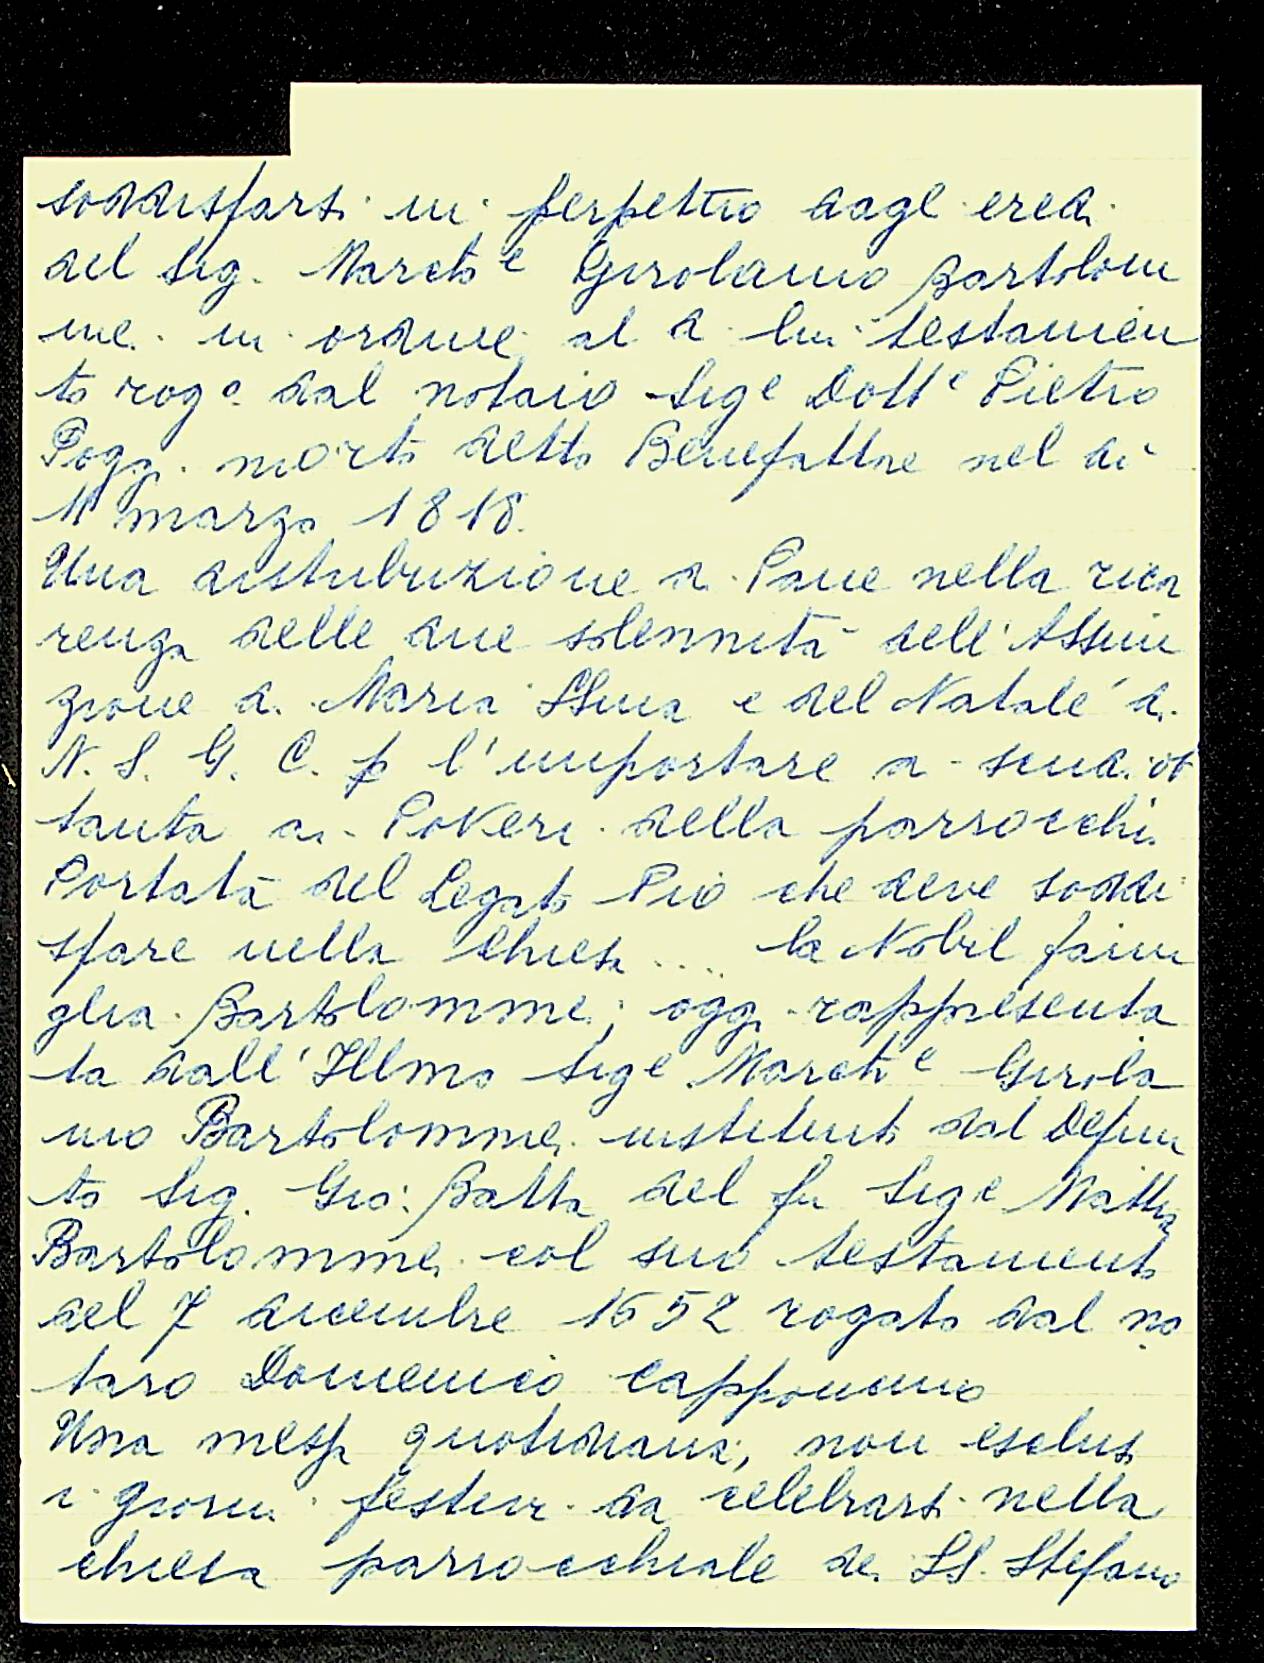 soddisfarsi in perpettuo dagl eredi
del Sig. March e Girolamo Bartolom
mei in ordine al di lui testamen
to rog o dal notaio Sig e Dott e Pietro
Poggi morto detto Benefattore nel dì
11 marzo 1818.
Una distribuzione di Pane nella ricor
renza delle due solennità dell'Assun
zione di Maria SSma e del Natale di
N. S. G. C. p l'importare di scudi ot
tanta ai Poveri della parrocchia
Portata del Legato Pio che deve soddi
sfare nella chiesa .... la Nobil fami
glia Bartolommei; oggi rappresenta
ta dall'Illmo Sig e March e Girola
mo Bartolommei instituito dal Defun
to Sig. Gio: Batta del fu Sig e Mattia
Bartolommei col suo testamento
del 7 dicembre 1652 rogato dal no
taro Domenico Capponcino
Una messa quotidiana, non esclusi
i giorni festivi da celebrarsi nella
chiesa parrocchiale dei SS. Stefano